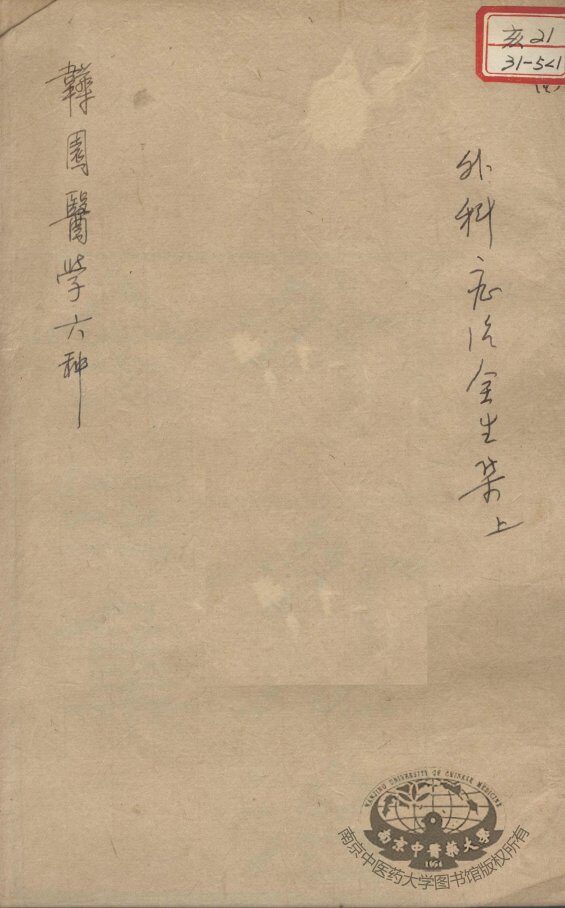 亥21
31-5<1
外科症治全生集上
韡園醫学六种
NANJING UNIVERSITY OF CHINESE MEDICINE
南京中醫藥大學
1954
南京中医药大学图书馆版权所有